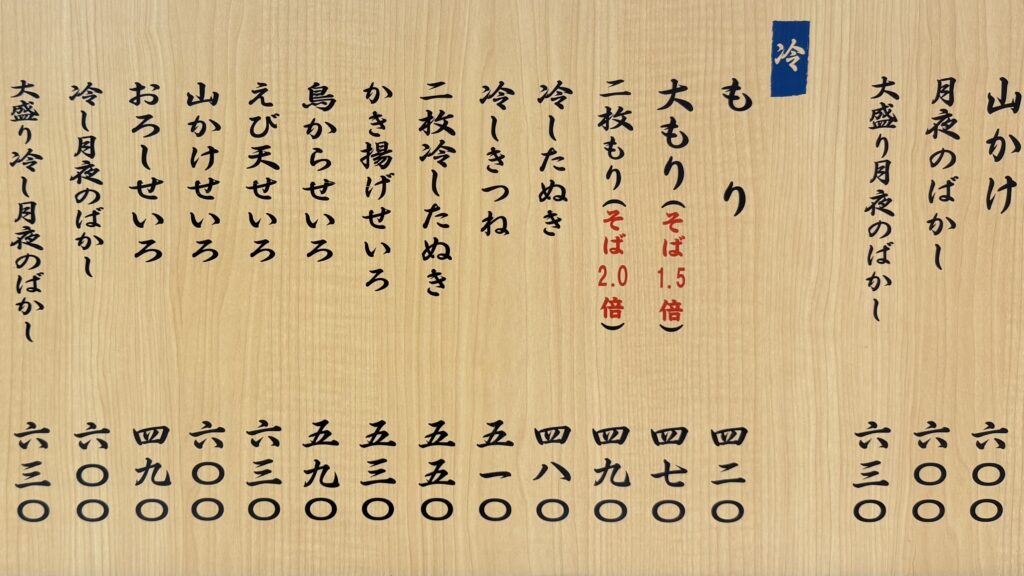 山かけ 六〇〇
月夜のばかし 六〇〇
大盛り月夜のばかし 六三〇
冷
もり 四二〇
大もり(そば1.5倍) 四七〇
二枚もり(そば2.0倍) 四九〇
冷したぬき 四八〇
冷しきつね 五一〇
二枚冷したぬき 五五〇
かき揚げせいろ 五三〇
鳥からせいろ 五九〇
えび天せいろ 六三〇
山かけせいろ 六〇〇
おろしせいろ 四九〇
冷し月夜のばかし 六〇〇
大盛り冷し月夜のばかし 六三〇